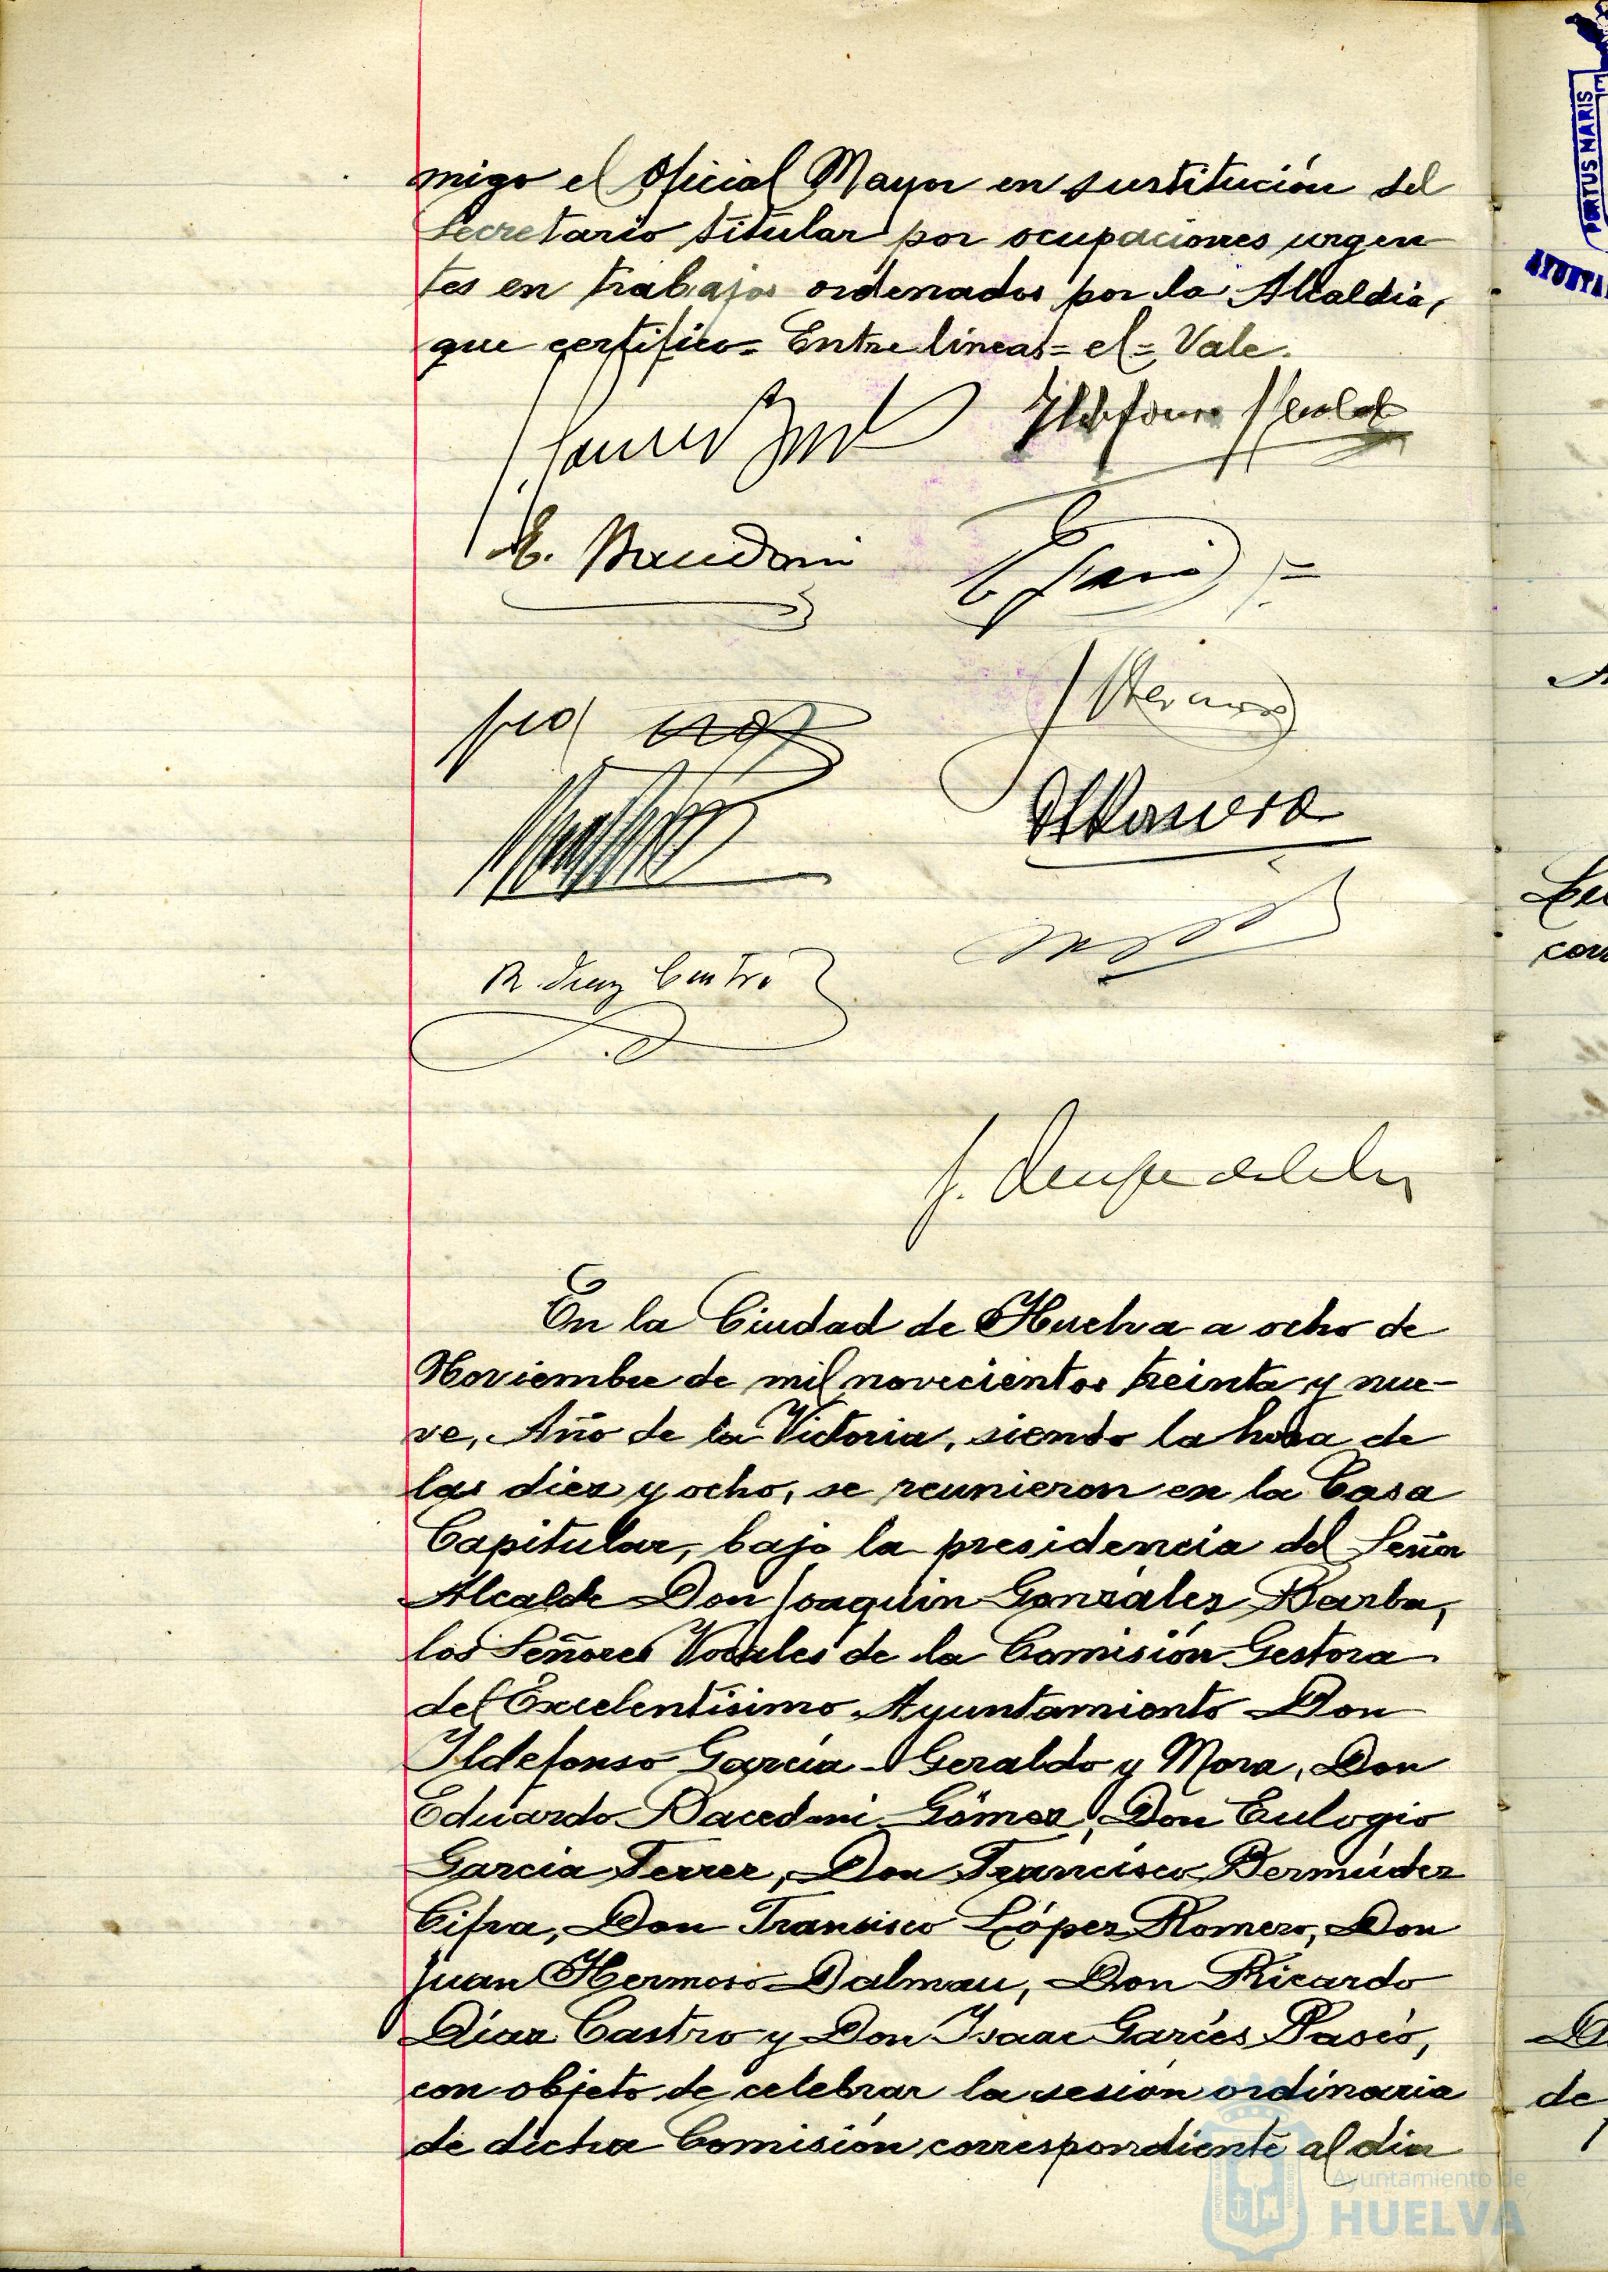 migo el Oficial Mayor en sustitución del
Secretario titular por ocupaciones urgen
tes en trabajos ordenados por la Alcaldía,
que certifico= Entre lineas= el= Vale.
E. Bacedoni
J. Hermoso
R. Diaz Castro
En la Ciudad de Huelva a ocho de
Noviembre de mil novecientos treinta y nue-
ve, Año de la Victoria, siendo la hora de
las diez y ocho, se reunieron en la Casa
Capitular, bajo la presidencia del Señor
Alcalde Don Joaquin González Barba,
los Señores Vocales de la Comisión Gestora
del Excelentísimo Ayuntamiento Don
Ildefonso García-Geraldo y Mora, Don
Eduardo Bacedoni Gómez, Don Eulogio
Garcia Ferrer, Don Francisco Bermúdez
Cifra, Don Francisco López Romero, Don
Juan Hermoso Dalmau, Don Ricardo
Díaz Castro y Don Isaac Garcés Pasés,
con objeto de celebrar la sesión ordinaria
de dicha Comisión correspondiente al dia
PORTUS MARIS
Ayuntamiento de
HUELVA